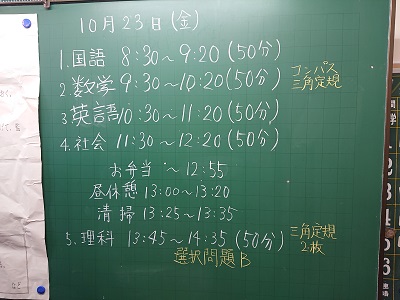 10月23日(金)
1.国語 8:30～9:20(50分)
2 数学 9:30～10:20(50分) コンパス 三角定規
3 英語 10:30～11:20(50分)
4.社会 11:30～12:20(50分)
お弁当 ～12:55
昼休憩 13:00～13:20
清掃 13:25～13:35
5.理科 13:45～14:35(50分) 三角定規 2枚
選択問題B